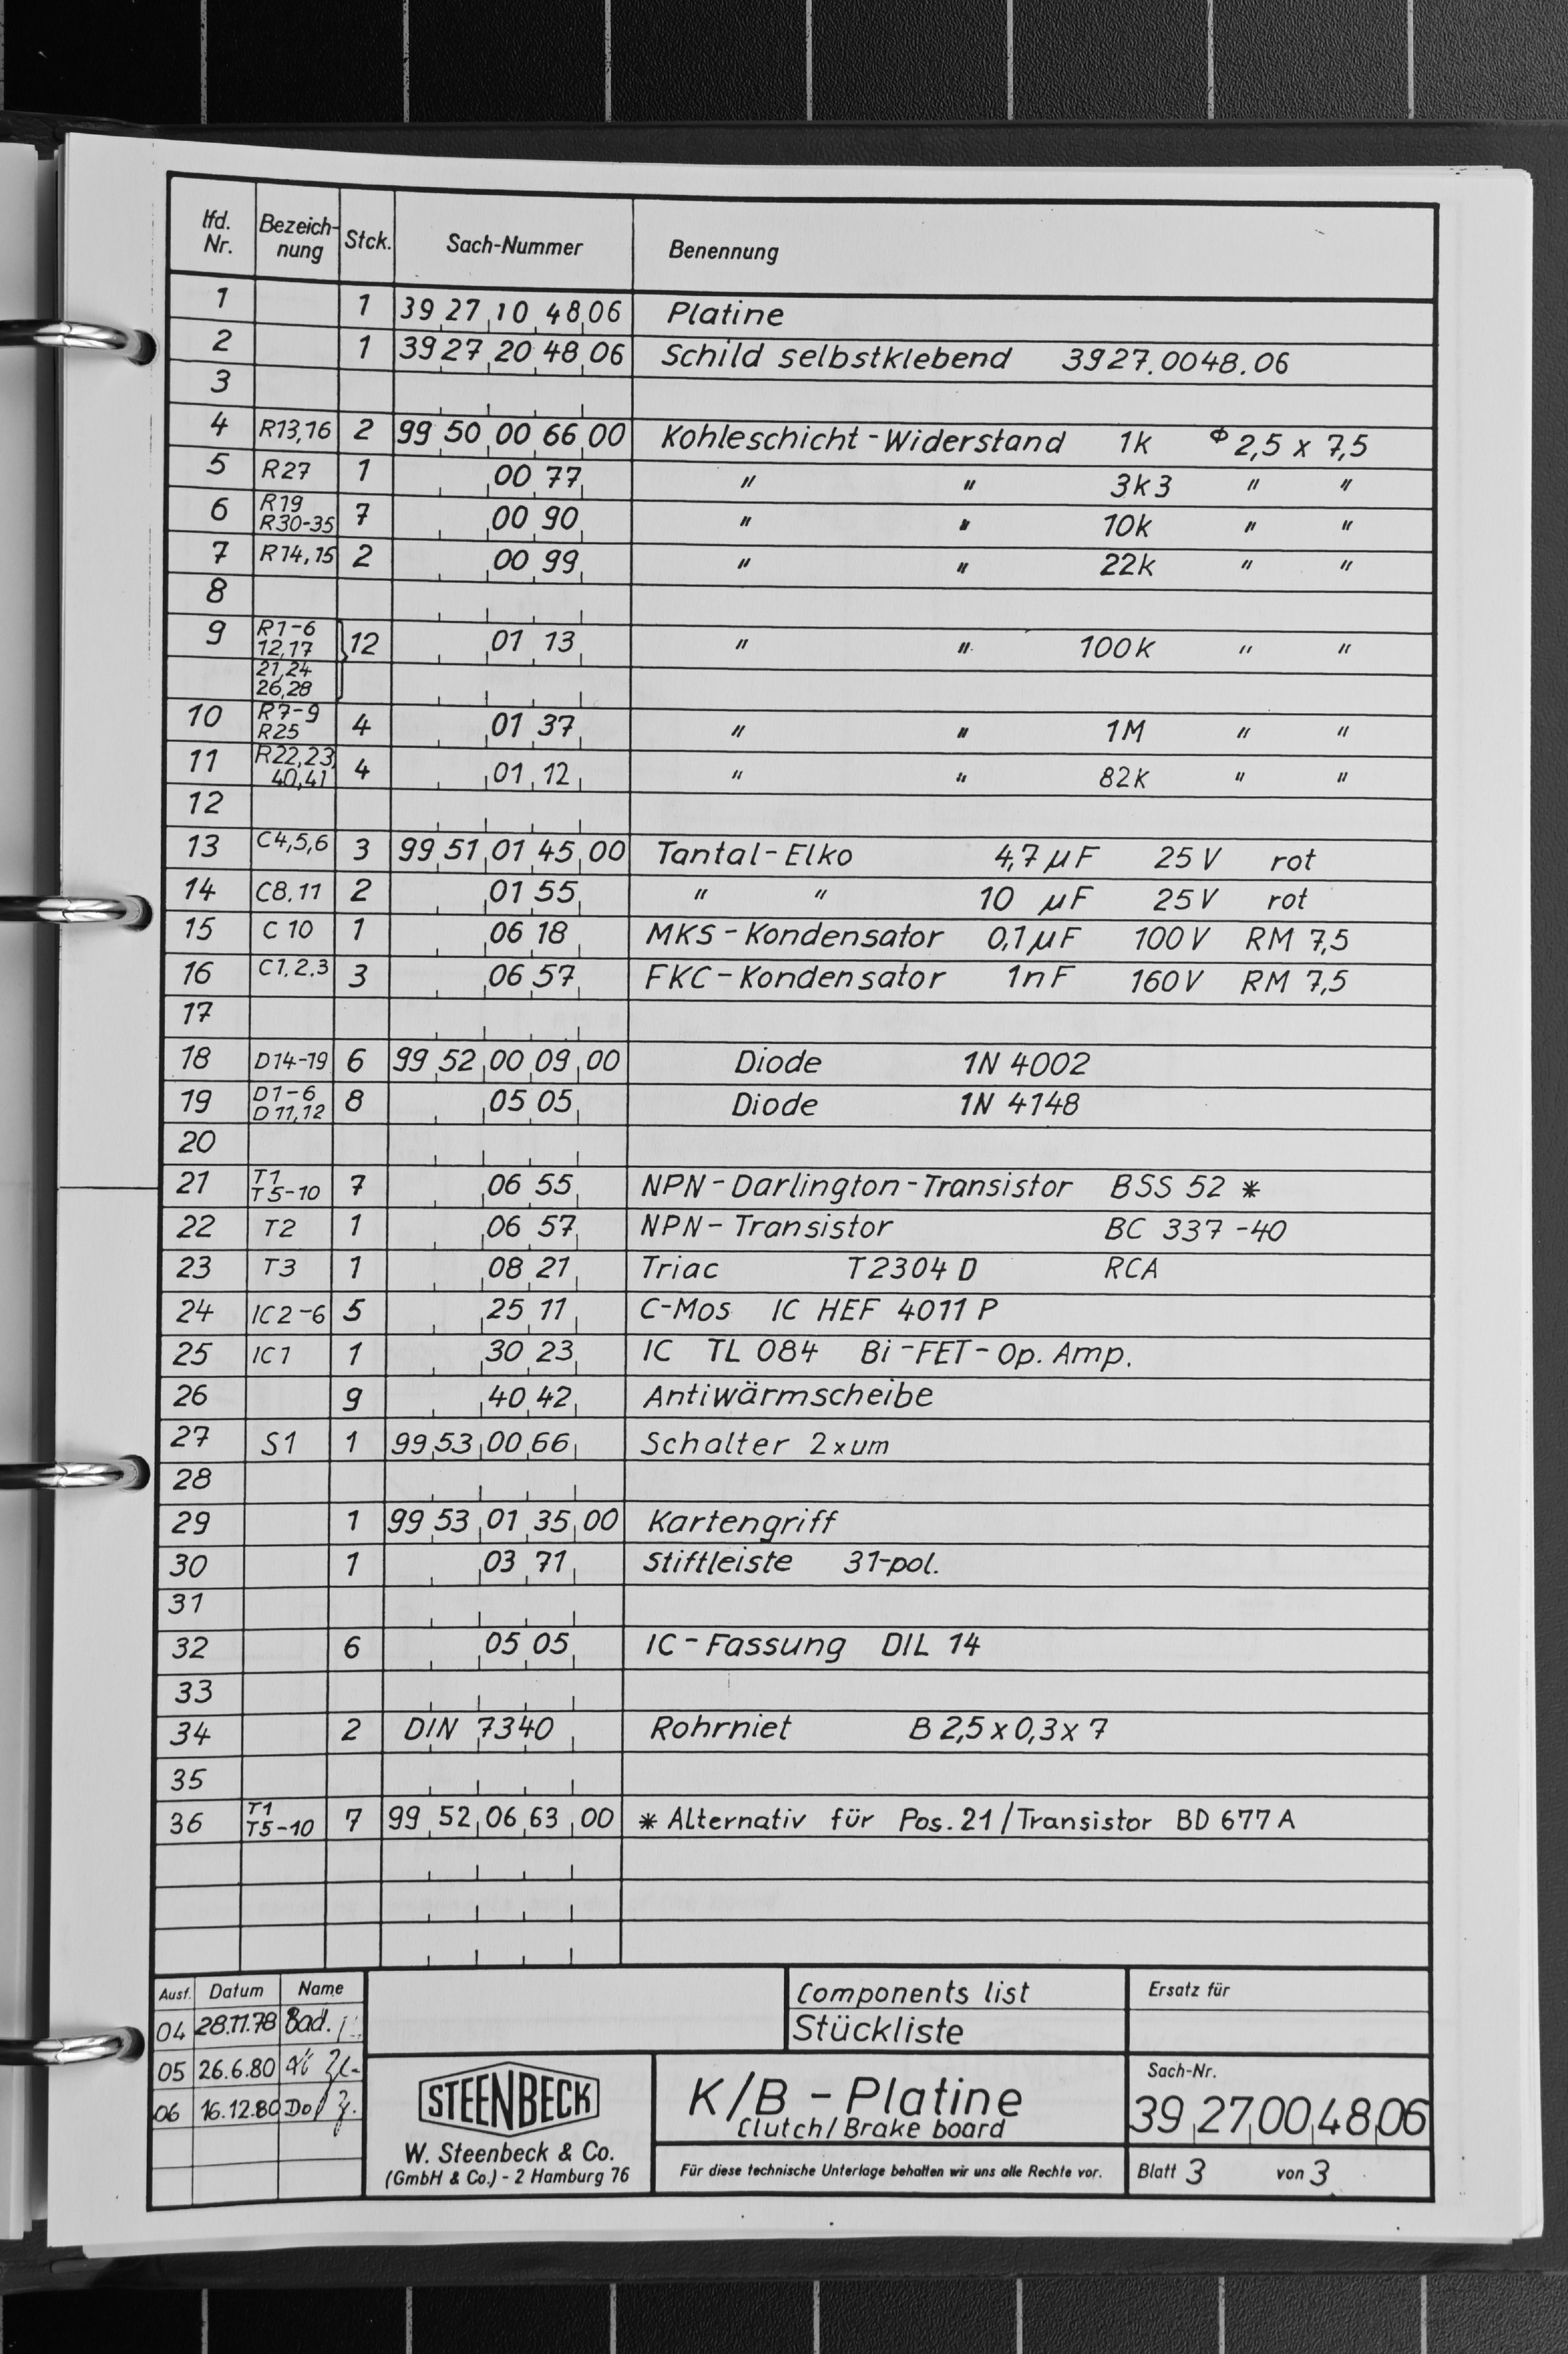 lfd. Nr. Bezeich-nung Stck. Sach-Nummer Benennung
1 1 39 27 10 48 06 Platine
2 1 39 27 20 48 06 Schild selbstklebend 3927.0048.06
3
4 R13,16 2 99 50 00 66 00 Kohleschicht-Widerstand 1k Φ 2,5 x 7,5
5 R27 1 00 77 " " 3k3 " "
6 R19 R30-35 7 00 90 " " 10k " "
7 R14,15 2 00 99 " " 22k " "
8
9 R1-6 12,17 21,24 26,28 } 12 01 13 " " 100k " "
10 R7-9 R25 4 01 37 " " 1M " "
11 R22,23, 40,41 4 01 12 " " 82k " "
12
13 C4,5,6 3 99 51 01 45 00 Tantal-Elko 4,7 µF 25 V rot
14 C8,11 2 01 55 " " 10 µF 25V rot
15 C 10 1 06 18 MKS-Kondensator 0,1µF 100V RM 7,5
16 C1,2,3 3 06 57 FKC-Kondensator 1nF 160V RM 7,5
17
18 D14-19 6 99 52 00 09 00 Diode 1N 4002
19 D1-6 D11,12 8 05 05 Diode 1N 4148
20
21 T1 T5-10 7 06 55 NPN-Darlington-Transistor BSS 52 *
22 T2 1 06 57 NPN-Transistor BC 337-40
23 T3 1 08 21 Triac T2304 D RCA
24 IC2-6 5 25 11 C-Mos IC HEF 4011 P
25 IC1 1 30 23 IC TL 084 Bi-FET-Op. Amp.
26 9 40 42 Antiwärmscheibe
27 S1 1 99 53 00 66 Schalter 2xum
28
29 1 99 53 01 35 00 Kartengriff
30 1 03 71 Stiftleiste 31-pol.
31
32 6 05 05 IC-Fassung DIL 14
33
34 2 DIN 7340 Rohrniet B 2,5 x 0,3 x 7
35
36 T1 T5-10 7 99 52 06 63 00 * Alternativ für Pos. 21/Transistor BD 677 A
Ausf. Datum Name
04 28.11.78 Bad.
05 26.6.80
06 16.12.80
Components list
Stückliste
Ersatz für
STEENBECK
W. Steenbeck & Co.
(GmbH & Co.) - 2 Hamburg 76
K/B - Platine
Clutch/Brake board
Für diese technische Unterlage behalten wir uns alle Rechte vor.
Sach-Nr.
39 27 00 48 06
Blatt 3 von 3